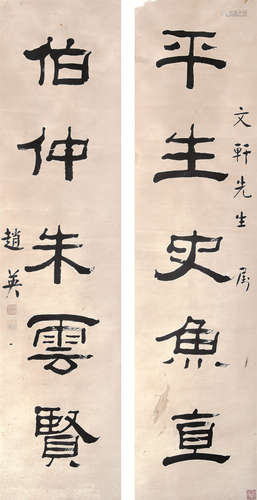 平生史魚直
文軒先生属
伯仲朱雲賢
趙英